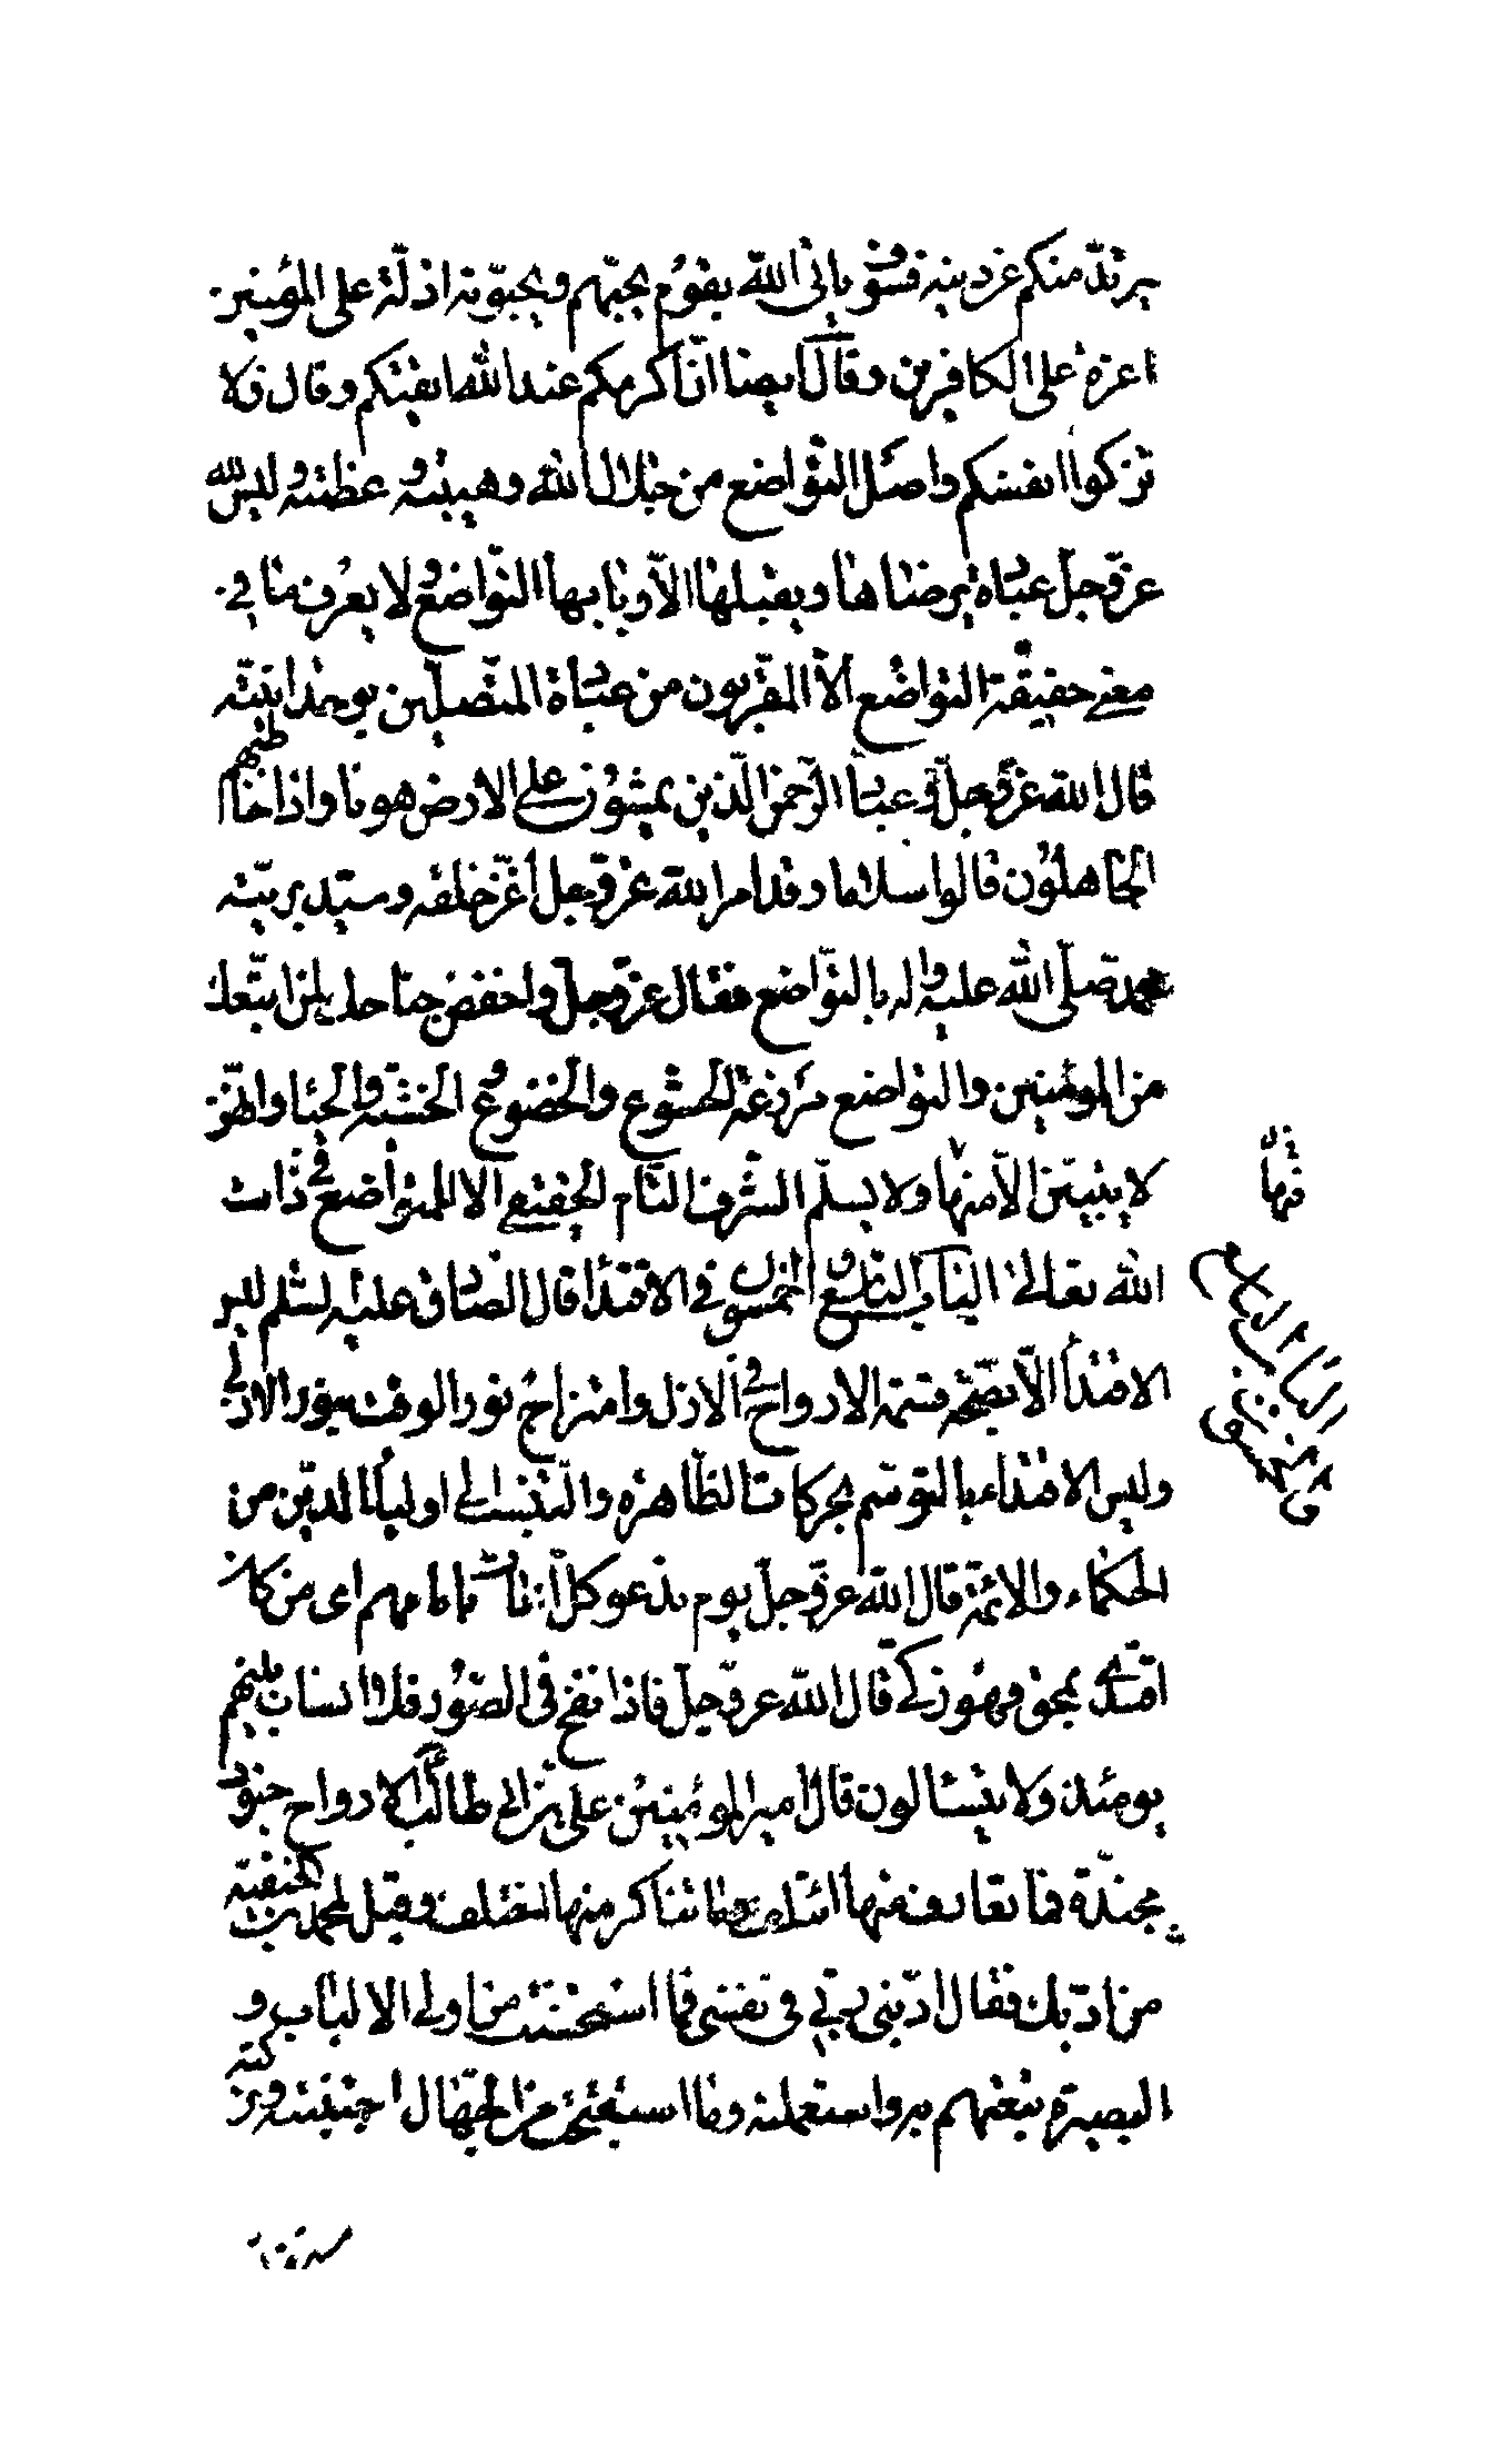 يرتد منكم عن دينه فسوف ياتى الله بقوم يحبهم ويحبونه اذلة على المؤمنين
اعزة على الكافرين وقال ايضا ان اكرمكم عند الله اتقيكم وقال فلا
تزكوا انفسكم واصل التواضع من جلال الله وهيبته وعظمته وليس لله
عز وجل عبادة يرضاها ويقبلها الا وبابها التواضع ولا يعرف ما فى
معنى حقيقة التواضع الا المقربون من عباده المتصلين بوحدانيته
قال الله عز وجل وعباد الرحمن الذين يمشون على الارض هونا واذا خاطبهم
الجاهلون قالوا سلاما وقد امر الله عز وجل اعز خلقه وسيد بريته
محمد صلى الله عليه واله بالتواضع فقال عز وجل واخفض جناحك لمن اتبعك
من المؤمنين والتواضع مزرعة الخشوع والخضوع والخشية والحيا وانهن
لا يتبين الا منها ولا يسلم الشرف التام الحقيقى الا للمتواضع فى ذات
الله تعالى الباب التاسع والخمسون فى الاقتدا قال الصادق عليه السلم
الاقتدا الا بصحة قسمة الارواح فى الازل وامتزاج نور الوقت بنور الازلى
وليس الاقتداء بالتوسم بحركات الظاهرة والتنسب الى اولياء الدين من
الحكماء والائمة قال الله عز وجل يوم ندعو كل اناس بامامهم اى من كان
اقتدى بمحق فهو زكى قال الله عز وجل فاذا نفخ فى الصور فلا انساب بينهم
يومئذ ولا يتسائلون قال امير المؤمنين على بن ابى طالب الارواح جنود
مجندة فما تعارف منها ائتلف وما تناكر منها اختلف وقيل لمحمد بن الحنفية
من ادبك فقال ادبنى ربى فى نفسى فما استحسنت من اولى الالباب و
البصيرة تبعتهم به واستعملته وما استقبحت من الجهال اجتنبته وتركته